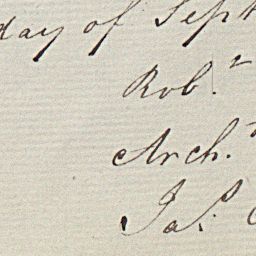 day of Sept
Rob.t
Arch.d
Ja.s